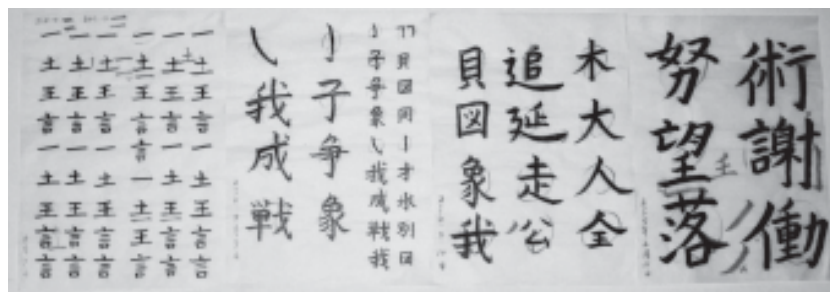 術謝働
努望落
木大人全
追延走公
貝図象我
貝図
子争象
我成戦我
子争象
我成戦
一土王言一土王言言
一土王言一土王言言
一土王言言一土王言
一土王言一土王言言
一土王言一土王言言
一土王言一土王言言